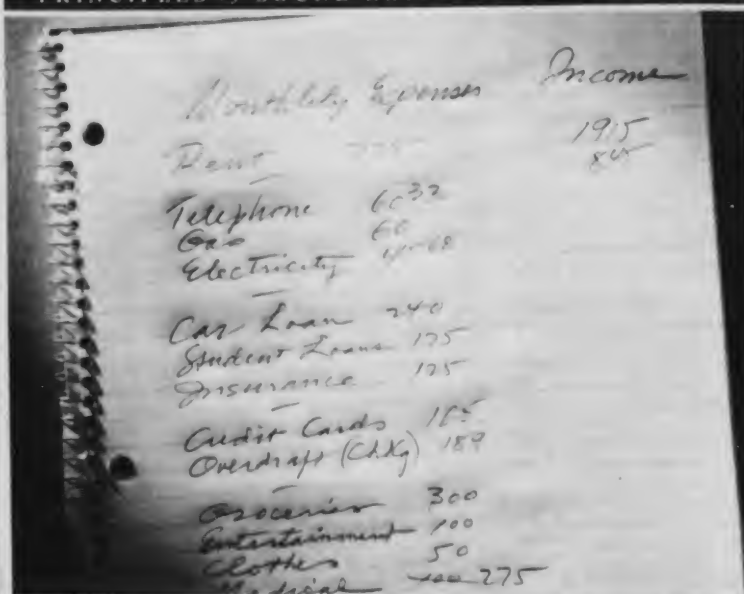 Monthly Expenses Income
Rent 1915
Telephone 60 32
Gas 60
Electricity
Car Loan 240
Student Loans 125
Insurance 125
Credit Cards
Overdraft (Chkg) 189
Groceries 300
Entertainment 100
Clothes 50
Medical 275